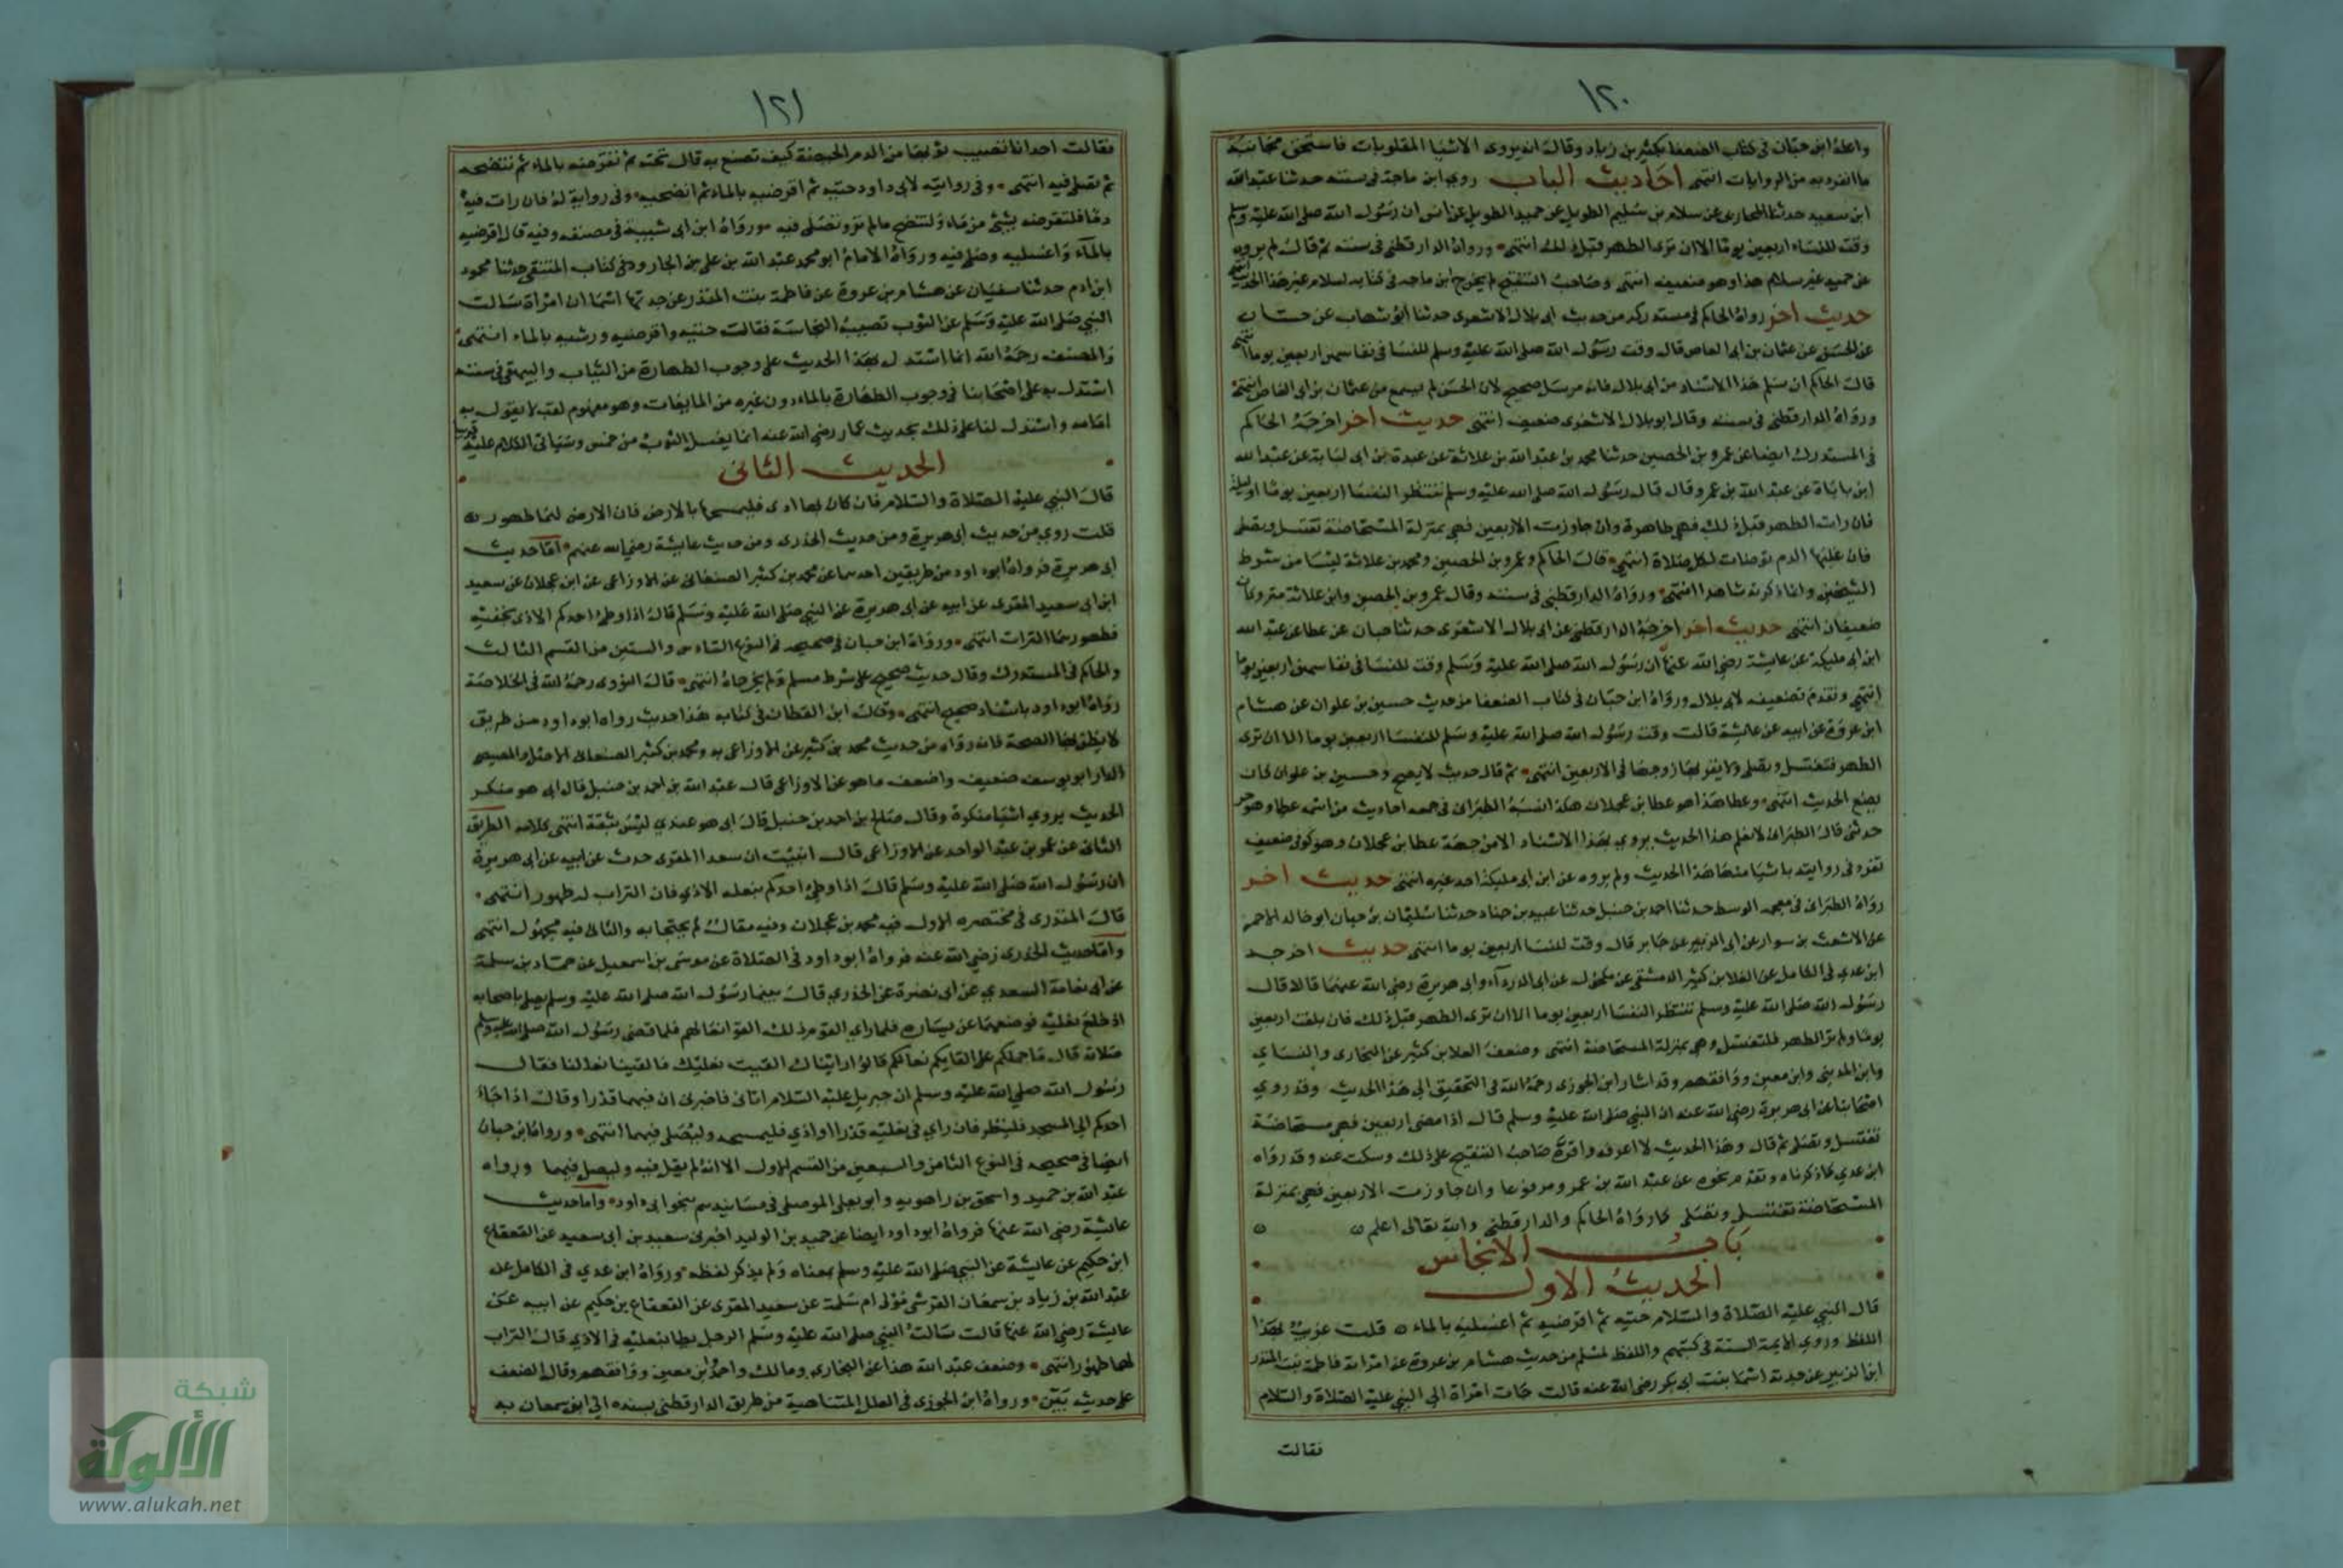 ١٢٠
واعله ابن حبان في كتاب الضعفا بكثير بن زياد وقال انه يروى الاشيا المقلوبات فاستحق مجانبة
ما انفرد به من الروايات انتهى احاديث الباب روى ابن ماجة في سننه حدثنا عبد الله
ابن سعيد حدثنا المحاربى عن سلام بن سليم الطويل عن حميد الطويل عن انس ان رسول الله صلى الله عليه وسلم
وقت للنفساء اربعين يوما الا ان ترى الطهر قبل ذلك انتهى ورواه الدارقطنى في سننه ثم قال لم يروه
عن حميد غير سلام هذا وهو ضعيف انتهى وصاحب التنقيح لم يخرج ابن ماجه في كتابه لسلام غير هذا الحديث انتهى
حديث اخر رواه الحاكم في مستدركه من حديث ابى بلال الاشعرى حدثنا ابو شهاب عن هشام
عن الحسن عن عثمان بن ابى العاص قال وقت رسول الله صلى الله عليه وسلم للنفسا في نفاسهن اربعين يوما انتهى
قال الحاكم ان سلم هذا الاسناد من ابى بلال فانه مرسل صحيح لان الحسن لم يسمع من عثمان بن ابى العاص انتهى
ورواه الدارقطنى في سننه وقال ابو بلال الاشعرى ضعيف انتهى حديث اخر اخرجه الحاكم
في المستدرك ايضا عن عمرو بن الحصين حدثنا محمد بن عبد الله بن علاثة عن عبدة بن ابى لبابة عن عبد الله
ابن باباة عن عبد الله بن عمرو قال قال رسول الله صلى الله عليه وسلم تنتظر النفسا اربعين يوما او ليلة
فان رات الطهر قبل ذلك فهي طاهرة وان جاوزت الاربعين فهي بمنزلة المستحاضة تغتسل وتصلى
فان غلبها الدم توضات لكل صلاة انتهى قال الحاكم وعمرو بن الحصين ومحمد بن علاثة ليسا من شرط
الشيخين وانما ذكرته شاهدا انتهى ورواه الدارقطنى في سننه وقال عمرو بن الحصين وابن علاثة متروكان
ضعيفان انتهى حديث اخر اخرجه الدارقطنى عن ابى بلال الاشعرى حدثنا حبان عن عطا عن عبد الله
ابن ابى مليكة عن عايشة رضي الله عنها ان رسول الله صلى الله عليه وسلم وقت للنفسا في نفاسهن اربعين يوما
انتهى وتقدم تضعيفه لابى بلال ورواه ابن حبان في كتاب الضعفا من حديث حسين بن علوان عن هشام
ابن عروة عن ابيه عن عايشة قالت وقت رسول الله صلى الله عليه وسلم للنفسا اربعين يوما الا ان ترى
الطهر فتغتسل وتصلى ولا يقربها زوجها في الاربعين انتهى ثم قال حديث لا يصح وحسين بن علوان كان
يضع الحديث انتهى وعطا هذا هو عطا بن عجلان هكذا نسبه الطبرانى في جمعه احاديث من اسمه عطا وهو جز
حدثنى قال الطبرانى لا نعلم هذا الحديث يروي بهذا الاسناد الا من جهة عطا بن عجلان وهو كوفى ضعيف
تفرد في روايته باشيا منها هذا الحديث ولم يروه عن ابن ابى مليكة احد غيره انتهى حديث اخر
رواه الطبرانى في معجمه الوسط حدثنا احمد بن حنبل حدثنا عبيد بن جناد حدثنا سليمان بن حيان ابو خالد الاحمر
عن الاشعث بن سوار عن ابى الزبير عن جابر قال وقت للنفسا اربعين يوما انتهى حديث اخرجه
ابن عدي في الكامل عن العلا بن كثير الدمشقى عن مكحول عن ابى الدرداء وابى هريرة رضي الله عنهما قالا قال
رسول الله صلى الله عليه وسلم تنتظر النفسا اربعين يوما الا ان ترى الطهر قبل ذلك فان بلغت اربعين
يوما ولم تر الطهر فلتغتسل وهي بمنزلة المستحاضة انتهى وضعف العلا بن كثير عن البخارى والنساي
وابن المدينى وابن معين ووافقهم وقد اشار ابن الجوزى رحمه الله في التحقيق الى هذا الحديث وقد روي
اصحابنا عن ابى هريرة رضي الله عنه ان النبي صلى الله عليه وسلم قال اذا مضى اربعين فهي مستحاضة
تغتسل وتصلى ثم قال وهذا الحديث لا اعرفه واقره صاحب التنقيح على ذلك وسكت عنه وقد رواه
ابن عدي كما ذكرناه وتقدم نحوه عن عبد الله بن عمر ومرفوعا وان جاوزت الاربعين فهي بمنزلة
المستحاضة تغتسل وتصلى كما رواه الحاكم والدارقطنى والله تعالى اعلم
باب الانجاس
الحديث الاول
قال النبي عليه الصلاة والسلام حتيه ثم اقرضيه ثم اغسليه بالماء قلت غريب بهذا
اللفظ وروي الايمة الستة في كتبهم واللفظ لمسلم من حديث هشام بن عروة عن امراته فاطمة بنت المنذر
ابن الزبير عن جدته اسما بنت ابى بكر رضي الله عنه قالت جات امراة الى النبي عليه الصلاة والسلام
فقالت
١٢١
فقالت احدانا تصيب ثوبها من الدم الحيضة كيف تصنع به قال تحته ثم تقرضه بالماء ثم تنضحه
ثم تصلى فيه انتهى وفي رواية لابى داود حتيه ثم اقرضيه بالماء ثم انضحيه وفي رواية له فان رات فيه
دما فلتقرضه بشئ من ماء ولتنضح مالم تر وتصلى فيه ورواه ابن ابى شيبة في مصنفه وفيه قال اقرضيه
بالماء واغسليه وصلى فيه ورواه الامام ابو محمد عبد الله بن على بن الجارود في كتاب المنتقى حدثنا محمود
ابن ادم حدثنا سفيان عن هشام بن عروة عن فاطمة بنت المنذر عن جدتها اسما ان امراة سالت
النبي صلى الله عليه وسلم عن الثوب تصيبه النجاسة فقالت حتيه واقرضيه ورشيه بالماء انتهى
والمصنف رحمه الله انما استدل بهذا الحديث على وجوب الطهارة من الثياب والبيهقى في سننه
استدل به على اصحابنا في وجوب الطهارة بالماء دون غيره من المايعات وهو مفهوم لقب لا يقول به
امامه واستدل لنا على ذلك بحديث عمار رضي الله عنه انما يغسل الثوب من خمس وسياتى الكلام عليه قريبا
الحديث الثانى
قال النبي عليه الصلاة والسلام فان كان بهما اذى فليمسحهما بالارض فان الارض لهما طهور
قلت روي من حديث ابى هريرة ومن حديث الخدرى ومن حديث عايشة رضي الله عنهم اما حديث
ابى هريرة فرواه ابو داود من طريقين احدهما عن محمد بن كثير الصنعانى عن الاوزاعى عن ابن عجلان عن سعيد
ابن ابى سعيد المقرى عن ابيه عن ابى هريرة عن النبي صلى الله عليه وسلم قال اذا وطئ احدكم الاذى بخفيه
فطهورهما التراب انتهى ورواه ابن حبان في صحيحه في النوع السادس والستين من القسم الثالث
والحاكم في المستدرك وقال حديث صحيح على شرط مسلم ولم يخرجاه انتهى قال النووى رحمه الله في الخلاصة
رواه ابو داود باسناد صحيح انتهى وقال ابن القطان في كتابه هذا حديث رواه ابو داود من طريق
لا يظن بها الصحة فانه رواه من حديث محمد بن كثير عن الاوزاعى به ومحمد بن كثير الصنعانى الاصل المصيصى
الدار ابو يوسف ضعيف واضعف ما هو عن الاوزاعى قال عبد الله بن احمد بن حنبل قال ابى هو منكر
الحديث يروي اشيا منكرة وقال صالح بن احمد بن حنبل قال ابى هو عندي ليس بثقة انتهى كلامه الطريق
الثانى عن عمر بن عبد الواحد عن الاوزاعى قال انبئت ان سعيدا المقرى حدث عن ابيه عن ابى هريرة
ان رسول الله صلى الله عليه وسلم قال اذا وطئ احدكم بنعله الاذي فان التراب له طهور انتهى
قال المنذرى في مختصره الاول فيه محمد بن عجلان وفيه مقال لم يحتجا به والثانى فيه مجهول انتهى
واما حديث الخدرى رضي الله عنه فرواه ابو داود في الصلاة عن موسى بن اسمعيل عن حماد بن سلمة
عن ابى نعامة السعدي عن ابى نضرة عن الخدري قال بينما رسول الله صلى الله عليه وسلم يصلى باصحابه
اذ خلع نعليه فوضعهما عن يساره فلما راي القوم ذلك القوا نعالهم فلما قضى رسول الله صلى الله عليه وسلم
صلاته قال ما حملكم على القايكم نعالكم قالوا رايناك القيت نعليك فالقينا نعالنا فقال
رسول الله صلى الله عليه وسلم ان جبريل عليه السلام اتانى فاخبرنى ان فيهما قذرا وقال اذا جاء
احدكم الى المسجد فلينظر فان راي في نعليه قذرا او اذي فليمسحه وليصلى فيهما انتهى ورواه ابن حبان
ايضا في صحيحه في النوع الثامن والسبعين من القسم الاول الا انه لم يقل فيه وليصل فيهما ورواه
عبد الله بن حميد واسحق بن راهويه وابو يعلى الموصلى في مسانيدهم بنحو ابى داود واما حديث
عايشة رضي الله عنها فرواه ابو داود ايضا عن حميد بن الوليد اخبرنى سعيد بن ابى سعيد عن القعقاع
ابن حكيم عن عايشة عن النبي صلى الله عليه وسلم بمعناه ولم يذكر لفظه ورواه ابن عدي في الكامل عن
عبد الله بن زياد بن سمعان القرشى مولى ام سلمة عن سعيد المقرى عن القعقاع بن حكيم عن ابيه عن
عايشة رضي الله عنها قالت سالت النبي صلى الله عليه وسلم الرجل يطا بنعليه في الاذي قال التراب
لهما طهور انتهى وضعف عبد الله هذا عن البخارى ومالك واحمد وابن معين ووافقهم وقال الضعف
على حديثه بين ورواه ابن الجوزى في العلل المتناهية من طريق الدارقطنى بسنده الى ابن سمعان به
شبكة
الألوكة
www.alukah.net